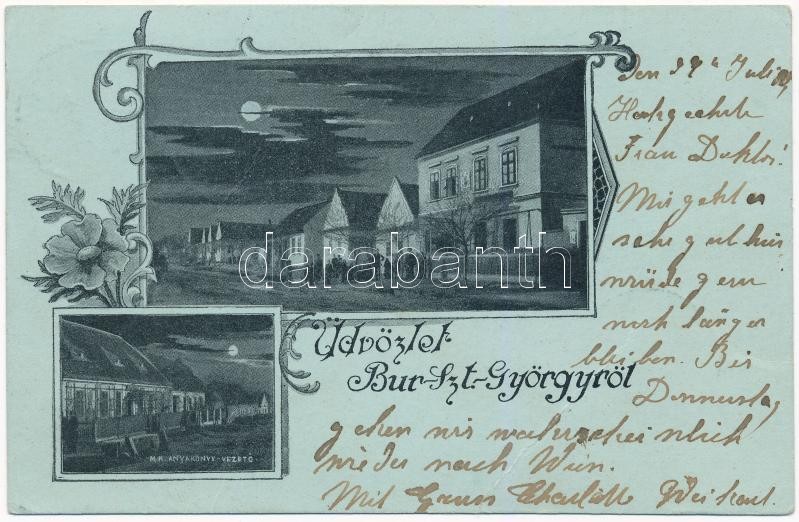 Den 29ᵗᵉ Juli
Hochgeehrte
Frau Doktor!
Mir geht es
sehr gut hier
würde gern
noch länger
bleiben. Bis
Donnerstag
gehen wir wahrscheinlich
wieder nach Wien.
Mit Gruss Charlotte
Üdvözlet
Bur-Szt-Györgyről
M.K. ANYAKÖNYV-VEZETŐ.
darabanth